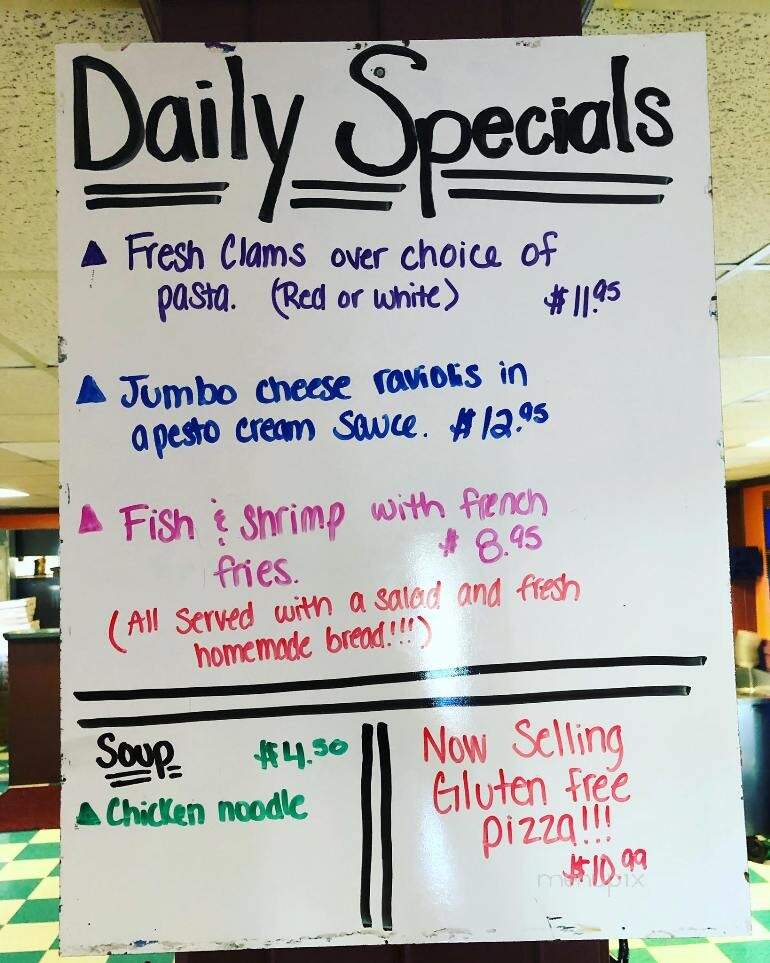 Daily Specials
Fresh Clams over choice of
pasta. (Red or white) $11.95
Jumbo cheese raviolis in
a pesto cream sauce. $12.95
Fish & shrimp with french
fries. $8.95
(All served with a salad and fresh
homemade bread!!!)
Soup $4.50
Chicken noodle
Now Selling
Gluten free
pizza!!!
$10.99
menupix